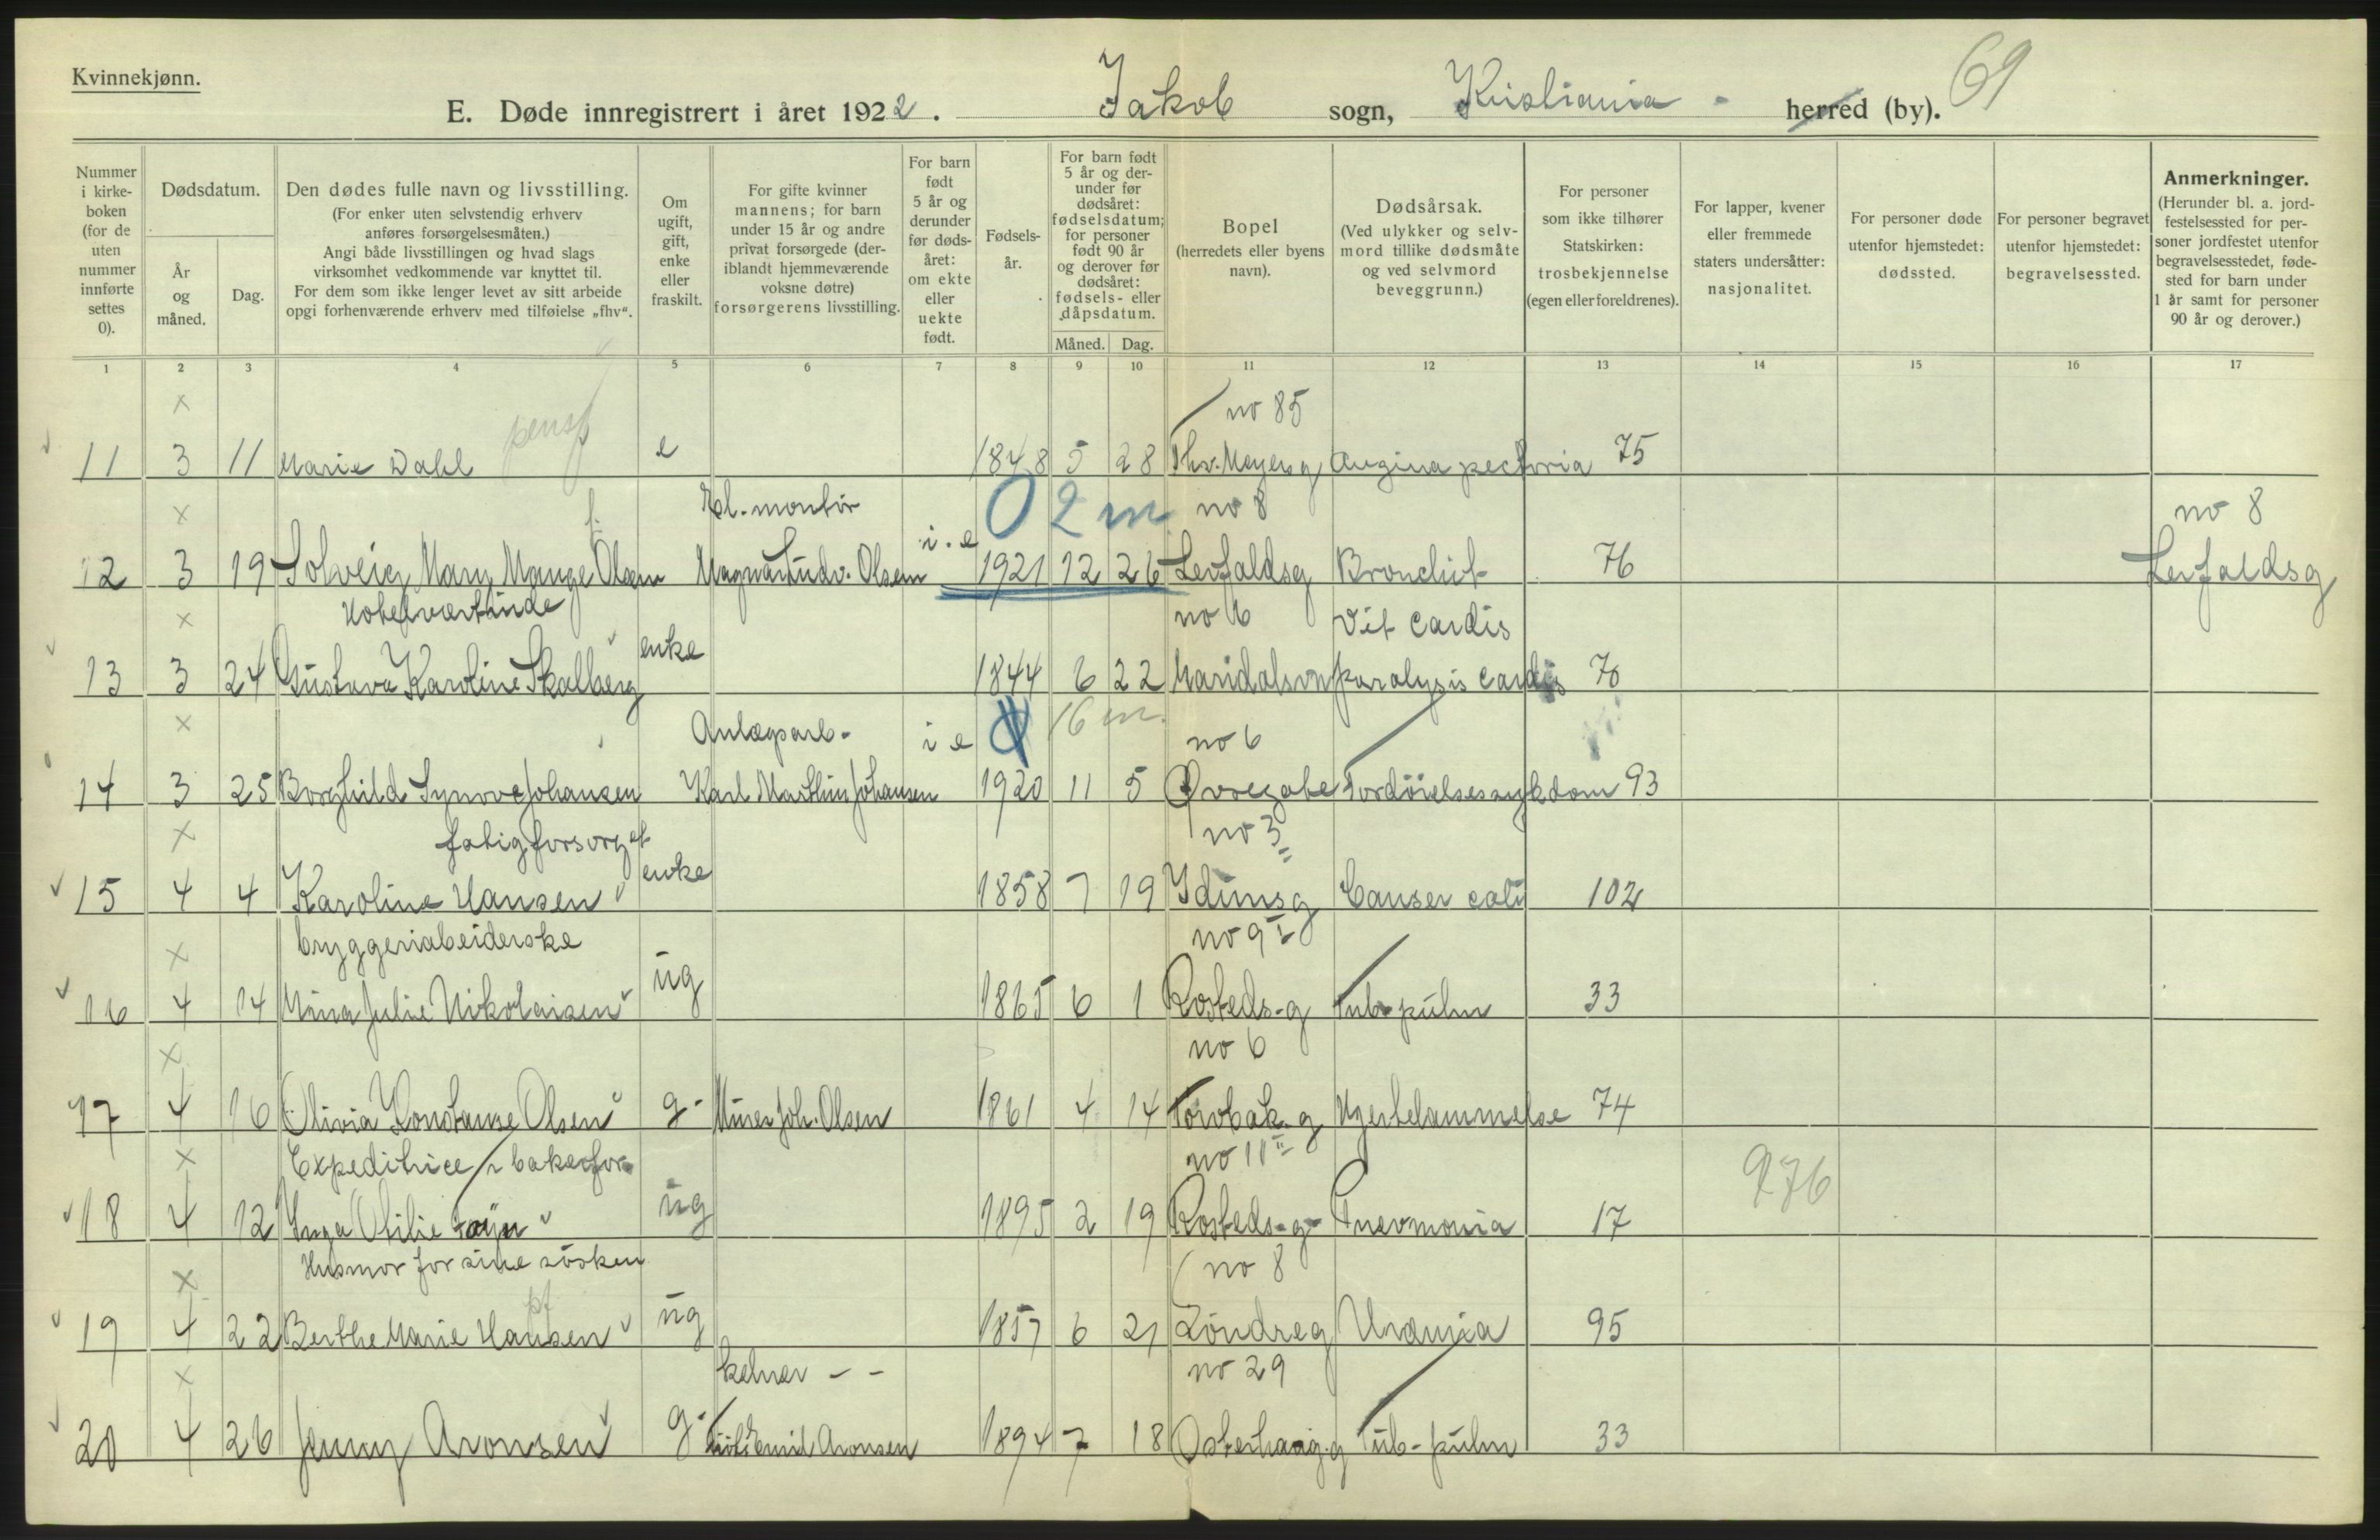 Kvinnekjønn.
E. Døde innregistrert i året 1922. Jakob sogn, Kristiania - herred (by). 69
Nummer i kirke-boken (for de uten nummer innførte settes 0).
Dødsdatum.
År og måned.
Dag.
Den dødes fulle navn og livsstilling.
(For enker uten selvstendig erhverv anføres forsørgelsesmåten.)
Angi både livsstillingen og hvad slags virksomhet vedkommende var knyttet til.
For dem som ikke lenger levet av sitt arbeide opgi forhenværende erhverv med tilføielse „fhv“.
Om ugift, gift, enke eller fraskilt.
For gifte kvinner mannens; for barn under 15 år og andre privat forsørgede (deriblandt hjemmeværende voksne døtre) forsørgerens livsstilling.
For barn født 5 år og derunder før dødsåret: om ekte eller uekte født.
Fødselsår.
For barn født 5 år og derunder før dødsåret: fødselsdatum; for personer født 90 år og derover før dødsåret: fødsels- eller dåpsdatum.
Måned. Dag.
Bopel (herredets eller byens navn).
Dødsårsak. (Ved ulykker og selvmord tillike dødsmåte og ved selvmord beveggrunn.)
For personer som ikke tilhører Statskirken: trosbekjennelse (egen eller foreldrenes).
For lapper, kvener eller fremmede staters undersåtter: nasjonalitet.
For personer døde utenfor hjemstedet: dødssted.
For personer begravet utenfor hjemstedet: begravelsessted.
Anmerkninger. (Herunder bl. a. jordfestelsessted for personer jordfestet utenfor begravelsesstedet, fødested for barn under 1 år samt for personer 90 år og derover.)
1 2 3 4 5 6 7 8 9 10 11 12 13 14 15 16 17
x pensj no 85
11 3 11 Marie Dahl e 1848 5 28 Thv. Meyersg Angina pectoria 75
x f. El. montør i.e 0 2 m no 8 no 8
12 3 19 Solveig Mary Mauge Olsen Magnus Ludv. Olsen 1921 12 26 Levfaldsg Bronchit 76 Levfaldsg
x Hotelværtinde no 6 Vit cardis
13 3 24 Gustava Karoline Skalberg enke 1844 6 22 Maridalsvn paralysis cardis 76
x Anlægsarb- i e 16 m. no 6
14 3 25 Borghild Synove Johansen Karl Marthin Johansen 1920 11 5 Øvregate Fordöielsessykdom 93
x fatigforsorget no 3
15 4 4 Karoline Hansen enke 1858 7 19 Idunsg Canser coli 102
x bryggeriabeiderske no 9
16 4 14 Mina Julie Nikolaisen ug 1865 6 1 Rosteds-g Tub-pulm 33
x no 6
17 4 16 Olivia Konstanse Olsen g- Murer Joh. Olsen 1861 4 14 Torvbak.g Hjertelammelse 74
x Expeditrice i bakerfor- no 11 976
18 4 12 Inga Otilie ug 1895 2 19 Rosteds-g- Pnevmonia 17
x Husmor for sine sösken no 8
19 4 22 Berthe Marie Hansen pf ug 1857 6 21 Söndreg Uræmia 95
x kelner - - no 29
20 4 26 Jenny Aronsen g- Emil Aronsen 1894 7 18 Osterhausg.g Tub-pulm 33